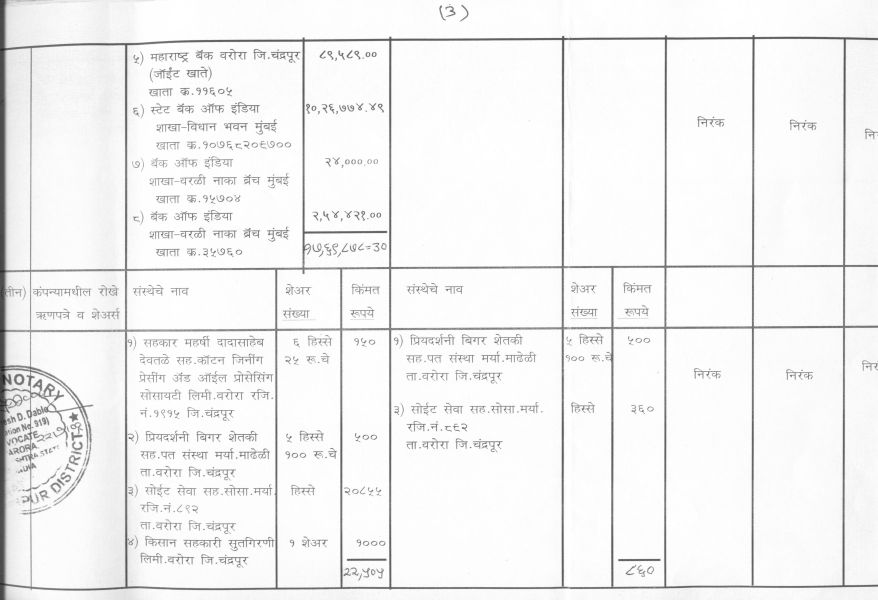 (3)
५) महाराष्ट्र बॅक वरोरा जि.चंद्रपूर ८९,५८९.००
(जॉईंट खाते)
खाता क्र.११६०५
६) स्टेट बॅक ऑफ इंडिया १०,२६,७७४.४९
शाखा-विधान भवन मुंबई
खाता क्र.१०७६८२०९७००
निरंक निरंक
७) बॅक ऑफ इंडिया २४,०००.००
शाखा-वरळी नाका ब्रॅच मुंबई
खाता क्र.१५७०४
८) बॅक ऑफ इंडिया २,५४,४२१.००
शाखा-वरळी नाका ब्रॅच मुंबई
खाता क्र.३५७६०
१७,६९,८७८=३०
(तीन) कंपन्यामधील रोखे ऋणपत्रे व शेअर्स
संस्थेचे नाव
शेअर संख्या
किंमत रूपये
संस्थेचे नाव
शेअर संख्या
किंमत रूपये
१) सहकार महर्षी दादासाहेब ६ हिस्से १५०
देवतळे सह.कॉटन जिनींग २५ रू.चे
प्रेसींग अँड ऑईल प्रोसेसिंग
सोसायटी लिमी.वरोरा रजि.
नं.१९१५ जि.चंद्रपूर
२) प्रियदर्शनी बिगर शेतकी ५ हिस्से ५००
सह.पत संस्था मर्या.माढेळी १०० रू.चे
ता.वरोरा जि.चंद्रपूर
३) सोईट सेवा सह.सोसा.मर्या. हिस्से २०८५५
रजि.नं.८९२
ता.वरोरा जि.चंद्रपूर
४) किसान सहकारी सुतगिरणी १ शेअर १०००
लिमी.वरोरा जि.चंद्रपूर
२२,५०५
१) प्रियदर्शनी बिगर शेतकी ५ हिस्से ५००
सह.पत संस्था मर्या.माढेळी १०० रू.चे
ता.वरोरा जि.चंद्रपूर
३) सोईट सेवा सह.सोसा.मर्या. हिस्से ३६०
रजि.नं.८९२
ता.वरोरा जि.चंद्रपूर
८६०
निरंक निरंक
NOTARY
esh D. Dable
ation No. 919)
VOCATE
ARORA
PUR DISTRICT